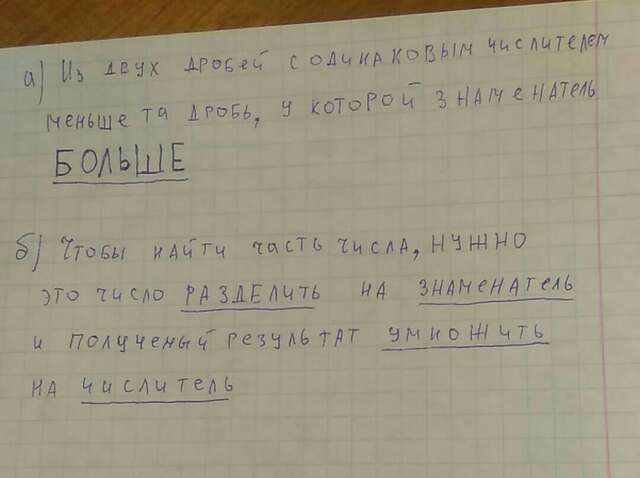 а) Из двух дробей с одинаковым числителем
меньше та дробь, у которой знаменатель
БОЛЬШЕ
б) Чтобы найти часть числа, нужно
это число РАЗДЕЛИТЬ на ЗНАМЕНАТЕЛЬ
и полученый результат УМНОЖИТЬ
на ЧИСЛИТЕЛЬ